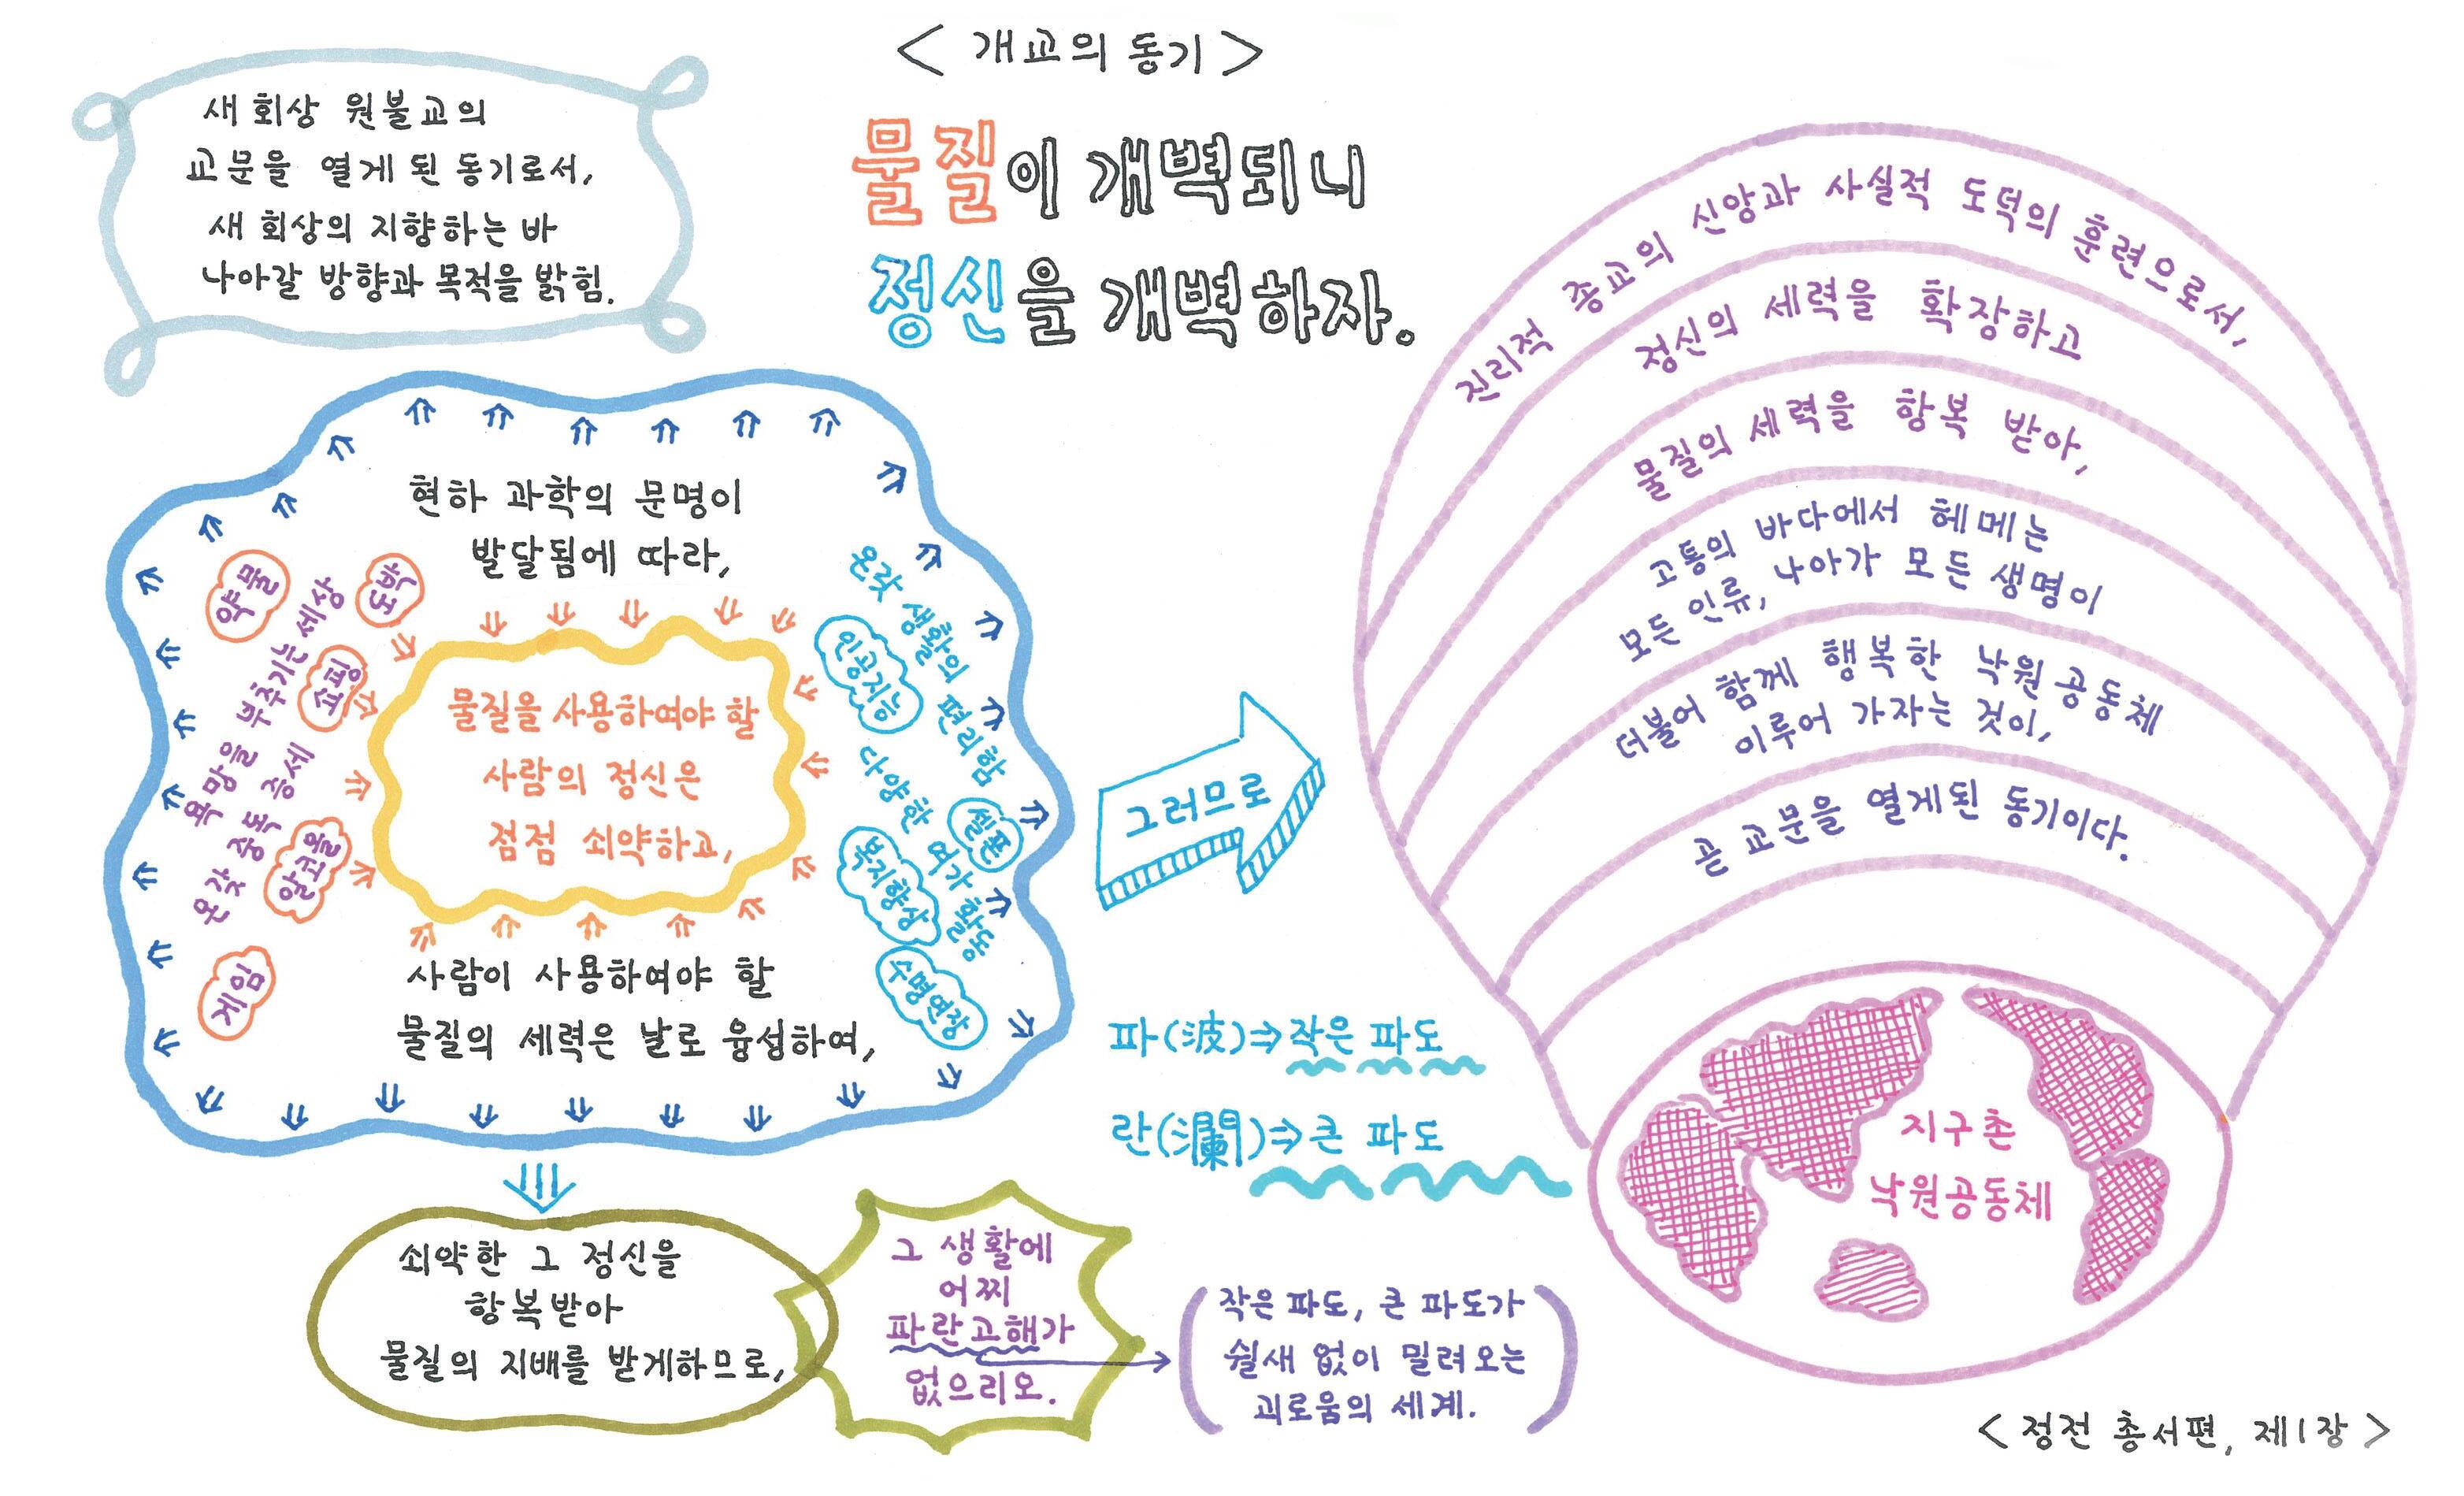 < 개교의 동기 >
물질이 개벽되니
정신을 개벽하자.
새 회상 원불교의
교문을 열게 된 동기로서,
새 회상의 지향하는 바
나아갈 방향과 목적을 밝힘.
현하 과학의 문명이
발달됨에 따라,
약물
도박
쇼핑
알코올
게임
욕망을 부추기는 세상
온갖 중독 증세
물질을 사용하여야 할
사람의 정신은
점점 쇠약하고,
온갖 생활의 편리함
인공지능
다양한 여가 활동
셀폰
복지향상
수명연장
사람이 사용하여야 할
물질의 세력은 날로 융성하여,
쇠약한 그 정신을
항복받아
물질의 지배를 받게하므로,
그 생활에
어찌
파란고해가
없으리오.
파(波)⇒작은 파도
란(瀾)⇒큰 파도
(작은 파도, 큰 파도가
쉴새 없이 밀려오는
괴로움의 세계.)
그러므로
진리적 종교의 신앙과 사실적 도덕의 훈련으로서,
정신의 세력을 확장하고
물질의 세력을 항복 받아,
고통의 바다에서 헤메는
모든 인류, 나아가 모든 생명이
더불어 함께 행복한 낙원 공동체
이루어 가자는 것이,
곧 교문을 열게된 동기이다.
지구촌
낙원공동체
< 정전 총서편, 제1장 >